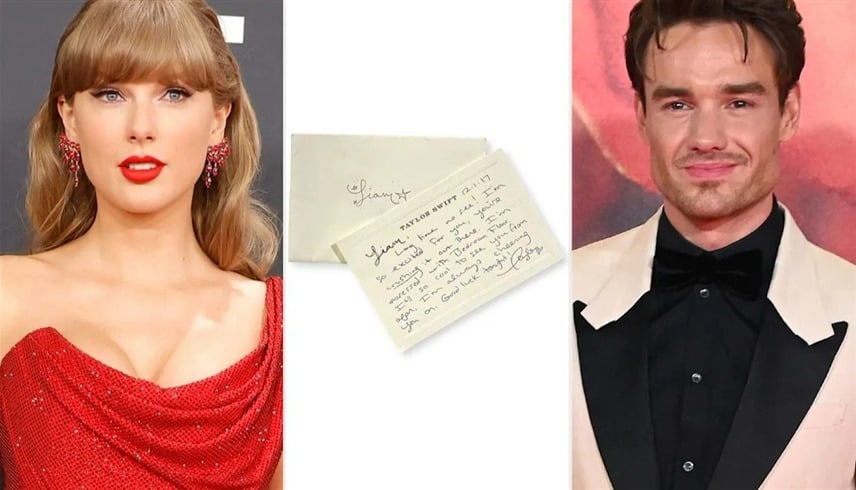 Liam
TAYLOR SWIFT 12.1.17
Liam,
Long time no see! I'm
so excited for you, you're
crushing it out there. I'm
obsessed with Bedroom Floor.
It's so cool to see you from
afar, I'm always cheering
you on. Good luck tonight!
Taylor